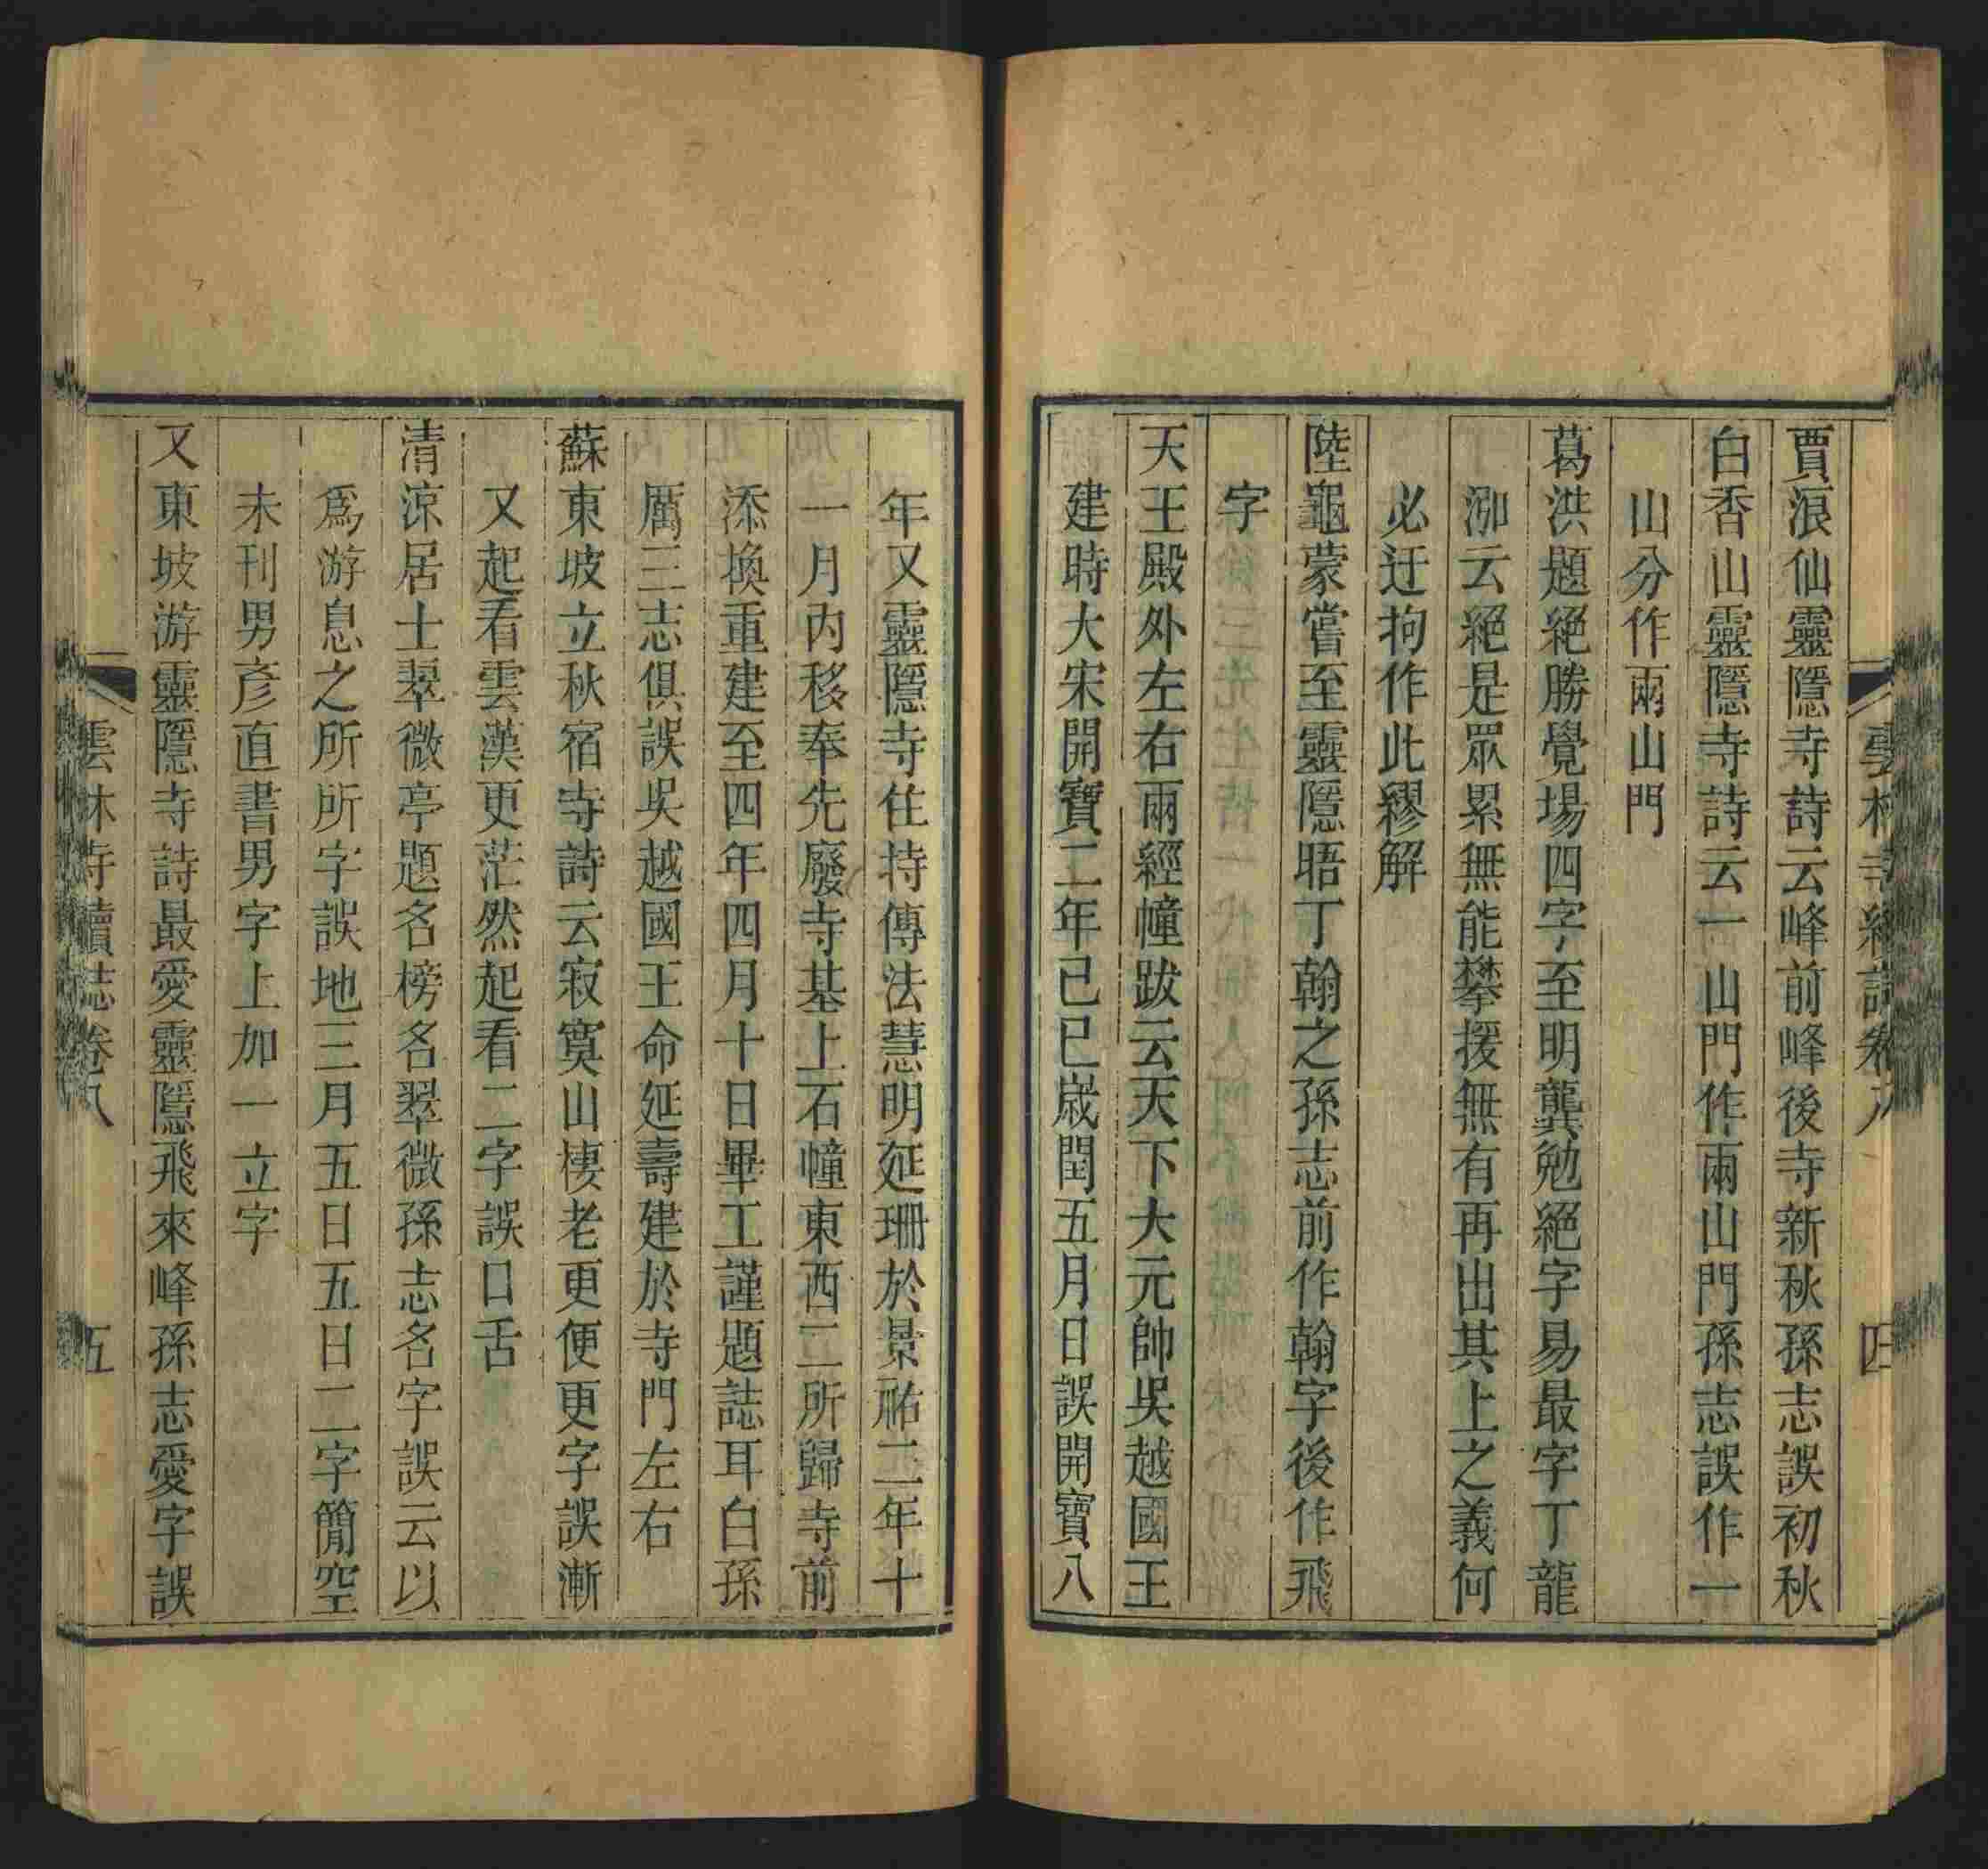 賈浪仙靈隱寺詩云峰前峰後寺新秋孫志誤初秋
白香山靈隱寺詩云一山門作兩山門孫志誤作一
山分作兩山門
葛洪題絕勝覺場四字至明龔勉絕字易最字丁龍
泖云絕是眾累無能攀援無有再出其上之義何
必迂拘作此繆解
陸龜蒙嘗至靈隱晤丁翰之孫志前作翰字後作飛
字
天王殿外左右兩經幢跋云天下大元帥吳越國王
建時大宋開寶二年己巳歲閏五月日誤開寶八
雲林寺續誌卷八 四
年又靈隱寺住持傳法慧明延珊於景祐二年十
一月內移奉先廢寺基上石幢東西二所歸寺前
添換重建至四年四月十日畢工謹題誌耳白孫
厲三志俱誤吳越國王命延壽建於寺門左右
蘇東坡立秋宿寺詩云寂寞山棲老更便更字誤漸
又起看雲漢更茫然起看二字誤口舌
清涼居士翠微亭題名榜名翠微孫志名字誤云以
爲游息之所所字誤地三月五日五日二字簡空
未刊男彥直書男字上加一立字
又東坡游靈隱寺詩最愛靈隱飛來峰孫志愛字誤
雲林寺續誌卷八 五